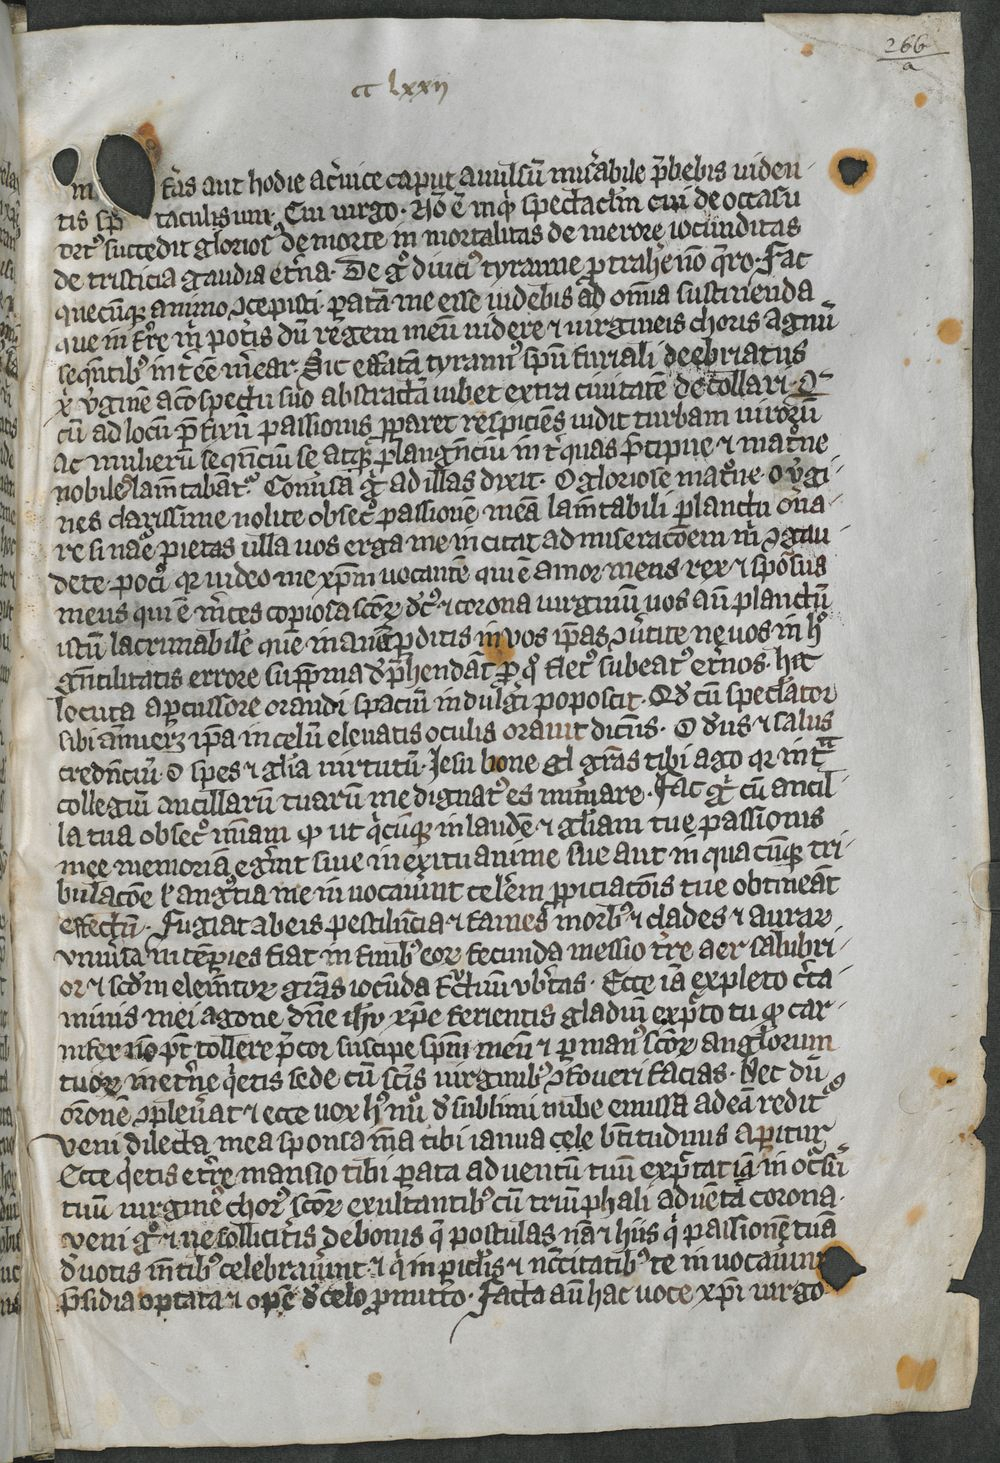 266
a
cc lxxii
in fers aut hodie acervice caput auulsū miserabile prebebis viden
tis sp taculis um. Cui virgo. Nō ē inquit spectaclm cui de occasu
ort9 succedit glorios9 de morte in mortalitas de merore iocunditas
de tristicia gaudia et'na. De gͦ diuci9 tyranne ptrahe nō qro. Fac
quecūq animo ꝯcepisti patā me esse uidebis ad omīa sustinenda
que inferre mͥ pot'is dū regem meū uidere ⁊ uirgineis choris agnū
seqntib9 int'ēe m'ear. Sic effata tyrann9 spū furiali deebriatus
x v'ginē acōspectu suo abstractā iubet extra ciuitatē decollari. Q
cū ad locū p̄fixū passionis pparet respiciēs uidit turbam uirorū
ac mulierū seqnciū se atq plangnciū int' quas p'cipue ⁊ matͦne
nobiles lam̄tabāt9. Conu'sa gͦ ad illas dixit. O gloriose matͦne o v'gi
nes clarissime nolite obsecͦ passionē meā lam̄tabili planctu on'a
re si nat'e pietas ulla uos erga me incitat ad miseracōem mͥ ꝯgau
dete poci9 qr uideo me xp̄m uocantē qui ē amor meus rex ⁊ spōsus
meus qui ē m'ces copiosa scōꝝ dc9 ⁊ corona uirginū uos aūt planctū
istū lacrimabile quē in anū pditis in uos ip̄as ꝯu'tite ne uos in h9
gn̄tilitatis errore suppma d'p̄hendāt p qͦ flet9 subeat9 et'nos. hec
locuta apcussore orandi spaciū indulgi poposcit. Qd' cū speclator
sibi ānu'eꝫ ip̄a in celū eleuatis oculis orauit dicēs. O d'us ⁊ salus
credn̄ciū. O spes ⁊ glīa uirtutū. Jesu bone gl grās tibi ago qr int'
collegiū ancillarū tuarū me dignat9 es mim̄are. Fac gͦ cū ancil
la tua obsecͦ mīam qp ut qicūq in laudē ⁊ glīam tue passionis
mee memoriā eg'int siue in exitu anime sue aut in quacūq tri
bulacōe l' ang9tia me in uocau'int cel'em ppiciacōis tue obtineāt
effectū. Fugiat ab eis pestilēcia ⁊ fames morb9 ⁊ clades ⁊ aurar
vniu'sa intēpies fiat in finib9 eoꝝ fecunda messio t're aer salubri
or ⁊ scd'm elem̄toꝝ grās iocūda fructuū vb'tas. Ecce iā expleto c'ta
minis mei agone dn̄e ih̄u xp̄e ferientis gladiū exp̄to tu qp car
nifex nō pt tollere p̄cor suscipe sp̄m meū ⁊ p man9 scōꝝ anglorum
tuoꝝ in et'ne q'etis sede cū scīs uirginib9 ꝯfoueri facias. Nec dū
orōnē ꝯpleu'at ⁊ ecce uox h9 mͦi d' sublimi nube emissa ad eā redit9
veni dilecta mea sponsa m̄a tibi ianua cele btitudinis apitur
Ecce q'etis et're mansio tibi pata aduentū tuū exp̄tat iā in oc'sū
tuū uirgine9 chor9 scōꝝ exultantib9 cū triūphali aduētā corona.
veni gͦ ⁊ ne sollicit'is de bonis q̄ postulas nā ⁊ hiis qͥ passionē tuā
d'uotis mētib9 celebrau'int ⁊ qͥ in pic'lis ⁊ n'citatib9 te in uocau'int
p̄sidia optata ⁊ opē d'celo pmitto. Facta aū hac uoce xp̄i uirgo